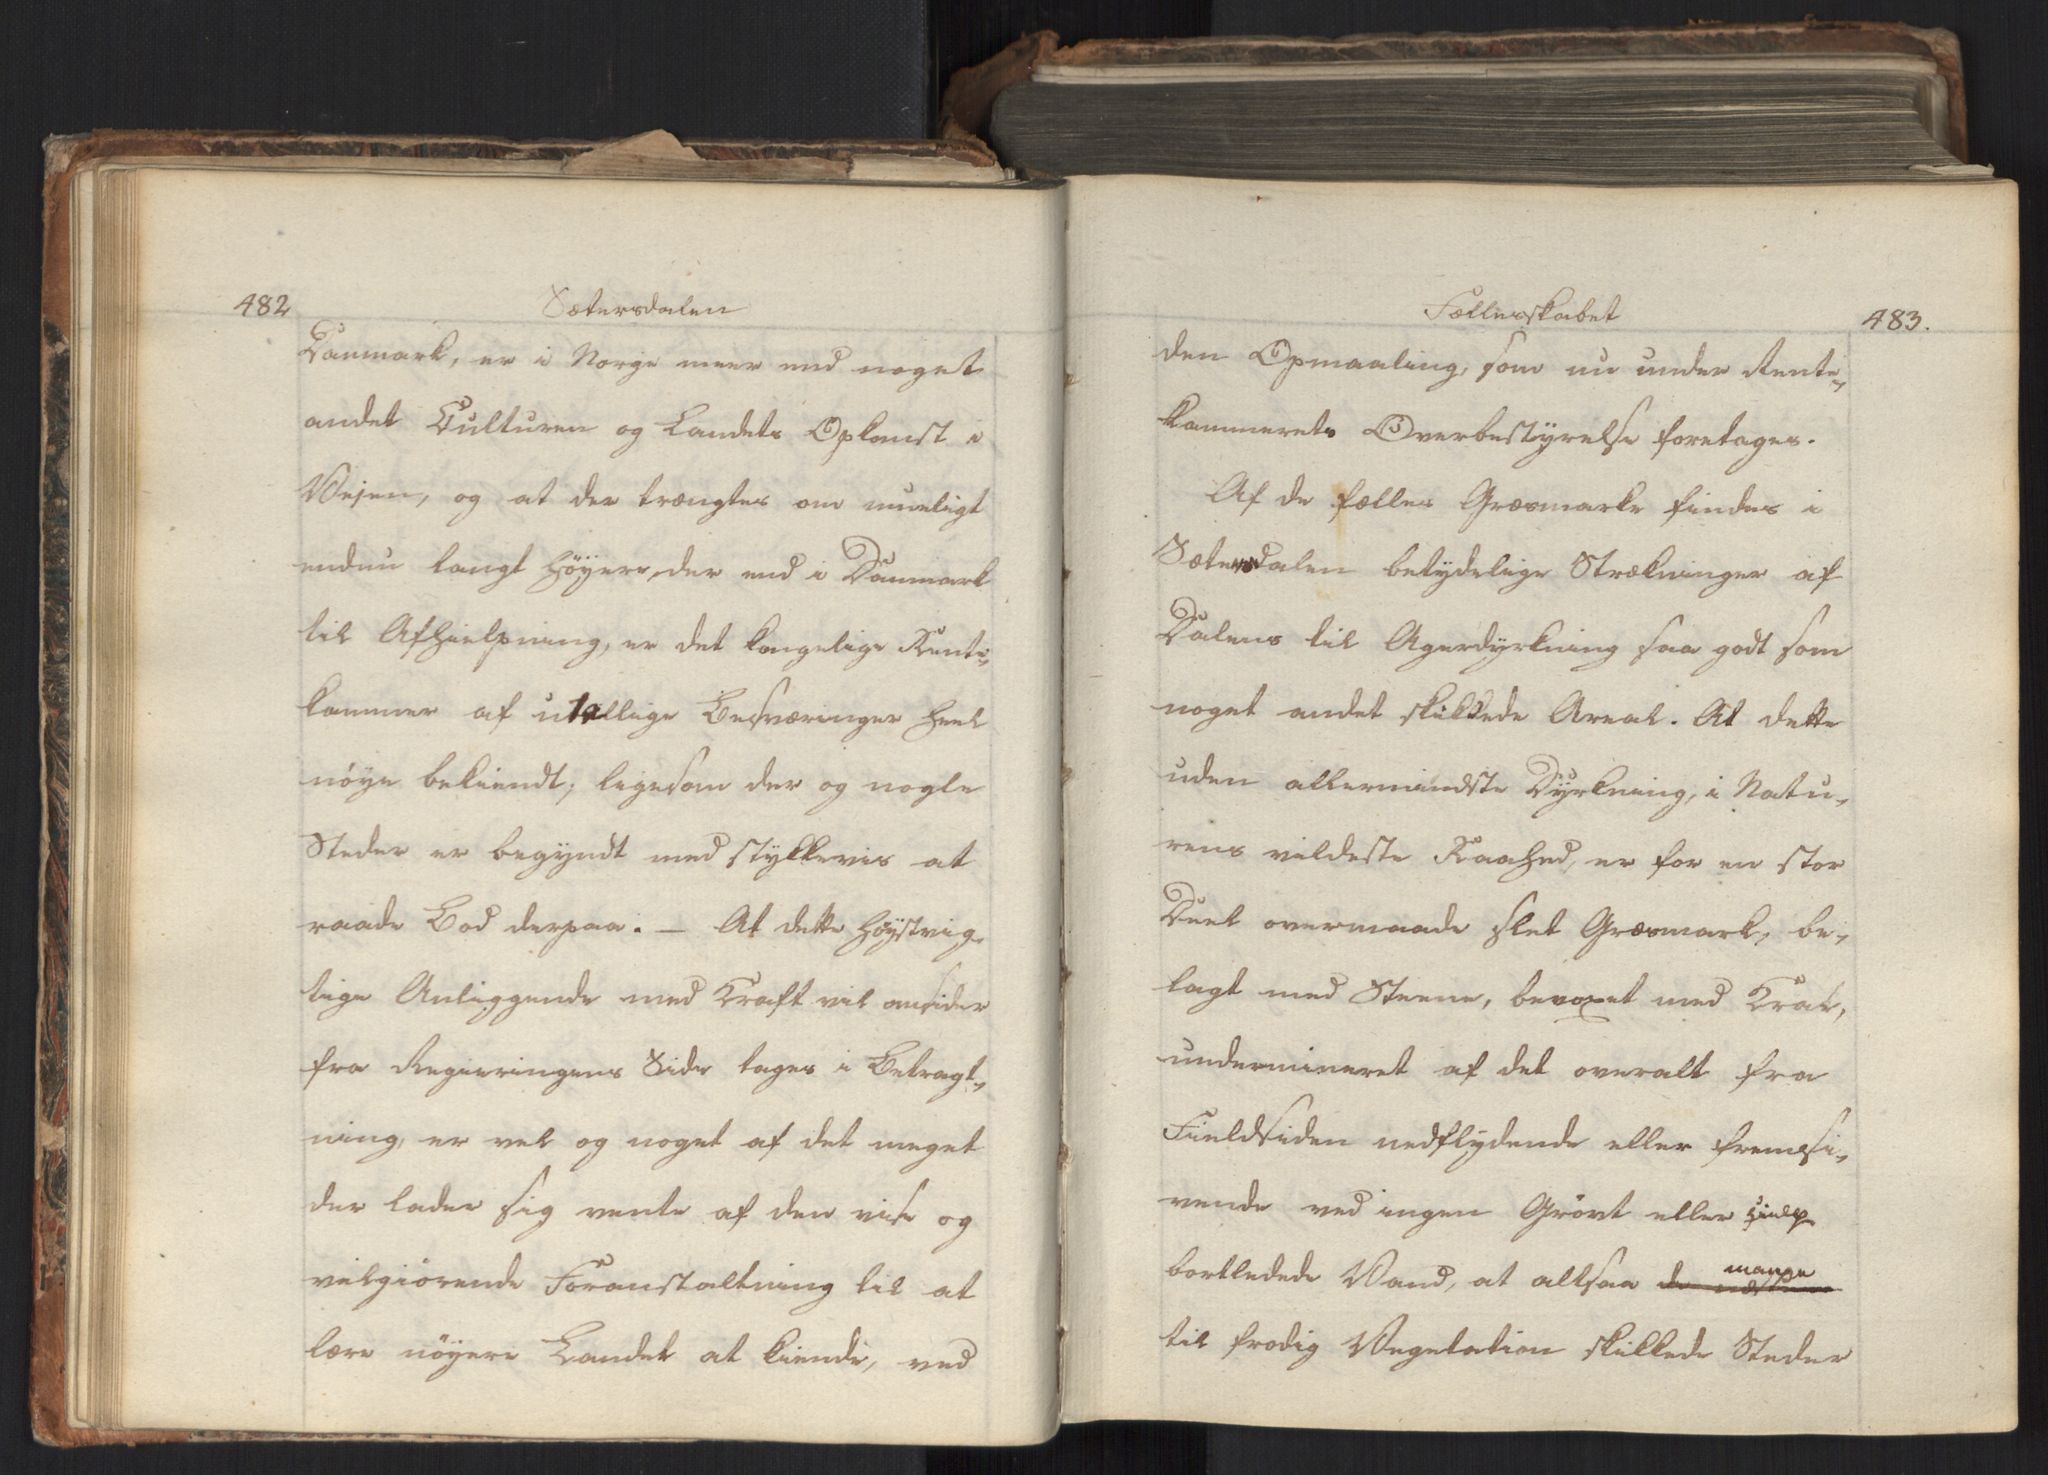 482
Sætersdalen
Danmark, er i Norge meer end noget
andet Culturen og Landets Opkomst i
Vejen, og at der trængtes om mueligt
endnu langt høyere der end i Danmark
til Afhielpning, er det kongelige Rente-
kammer af utallige Besværinger heel
nöye bekiendt; ligesom der og nogle
Steder er begyndt med stykkevis at
raade Bod derpaa. — At dette höystvig-
tige Anliggende med Kraft vil omsider
fra Regieringens Side tages i Betragt-
ning, er vel og noget af det meget
der lader sig vente af den vise og
velgiörende Foranstaltning til at
lære nöyere Landet at kiende, ved
Fællesskabet
483.
den Opmaaling, som nu under Rente-
kammerets Overbestyrelse foretages.
Af de fælles Græsmarke findes i
Sætersdalen betydelige Strækninger af
Dalens til Agerdyrkning saa godt som
noget andet skikkede Areal. At dette
uden allermindste Dyrkning, i Natu-
rens vildeste Raahed, er for en stor
Deel overmaade slet Græsmark, be-
lagt med Steene, bevoxet med Krat,
undermineret af det overalt fra
Fieldsiden nedflydende eller fremsi-
vende ved ingen Grövt eller hielp
bortledede Vand, at altsaa de mange
til frodig Vegetation skikkede Steder